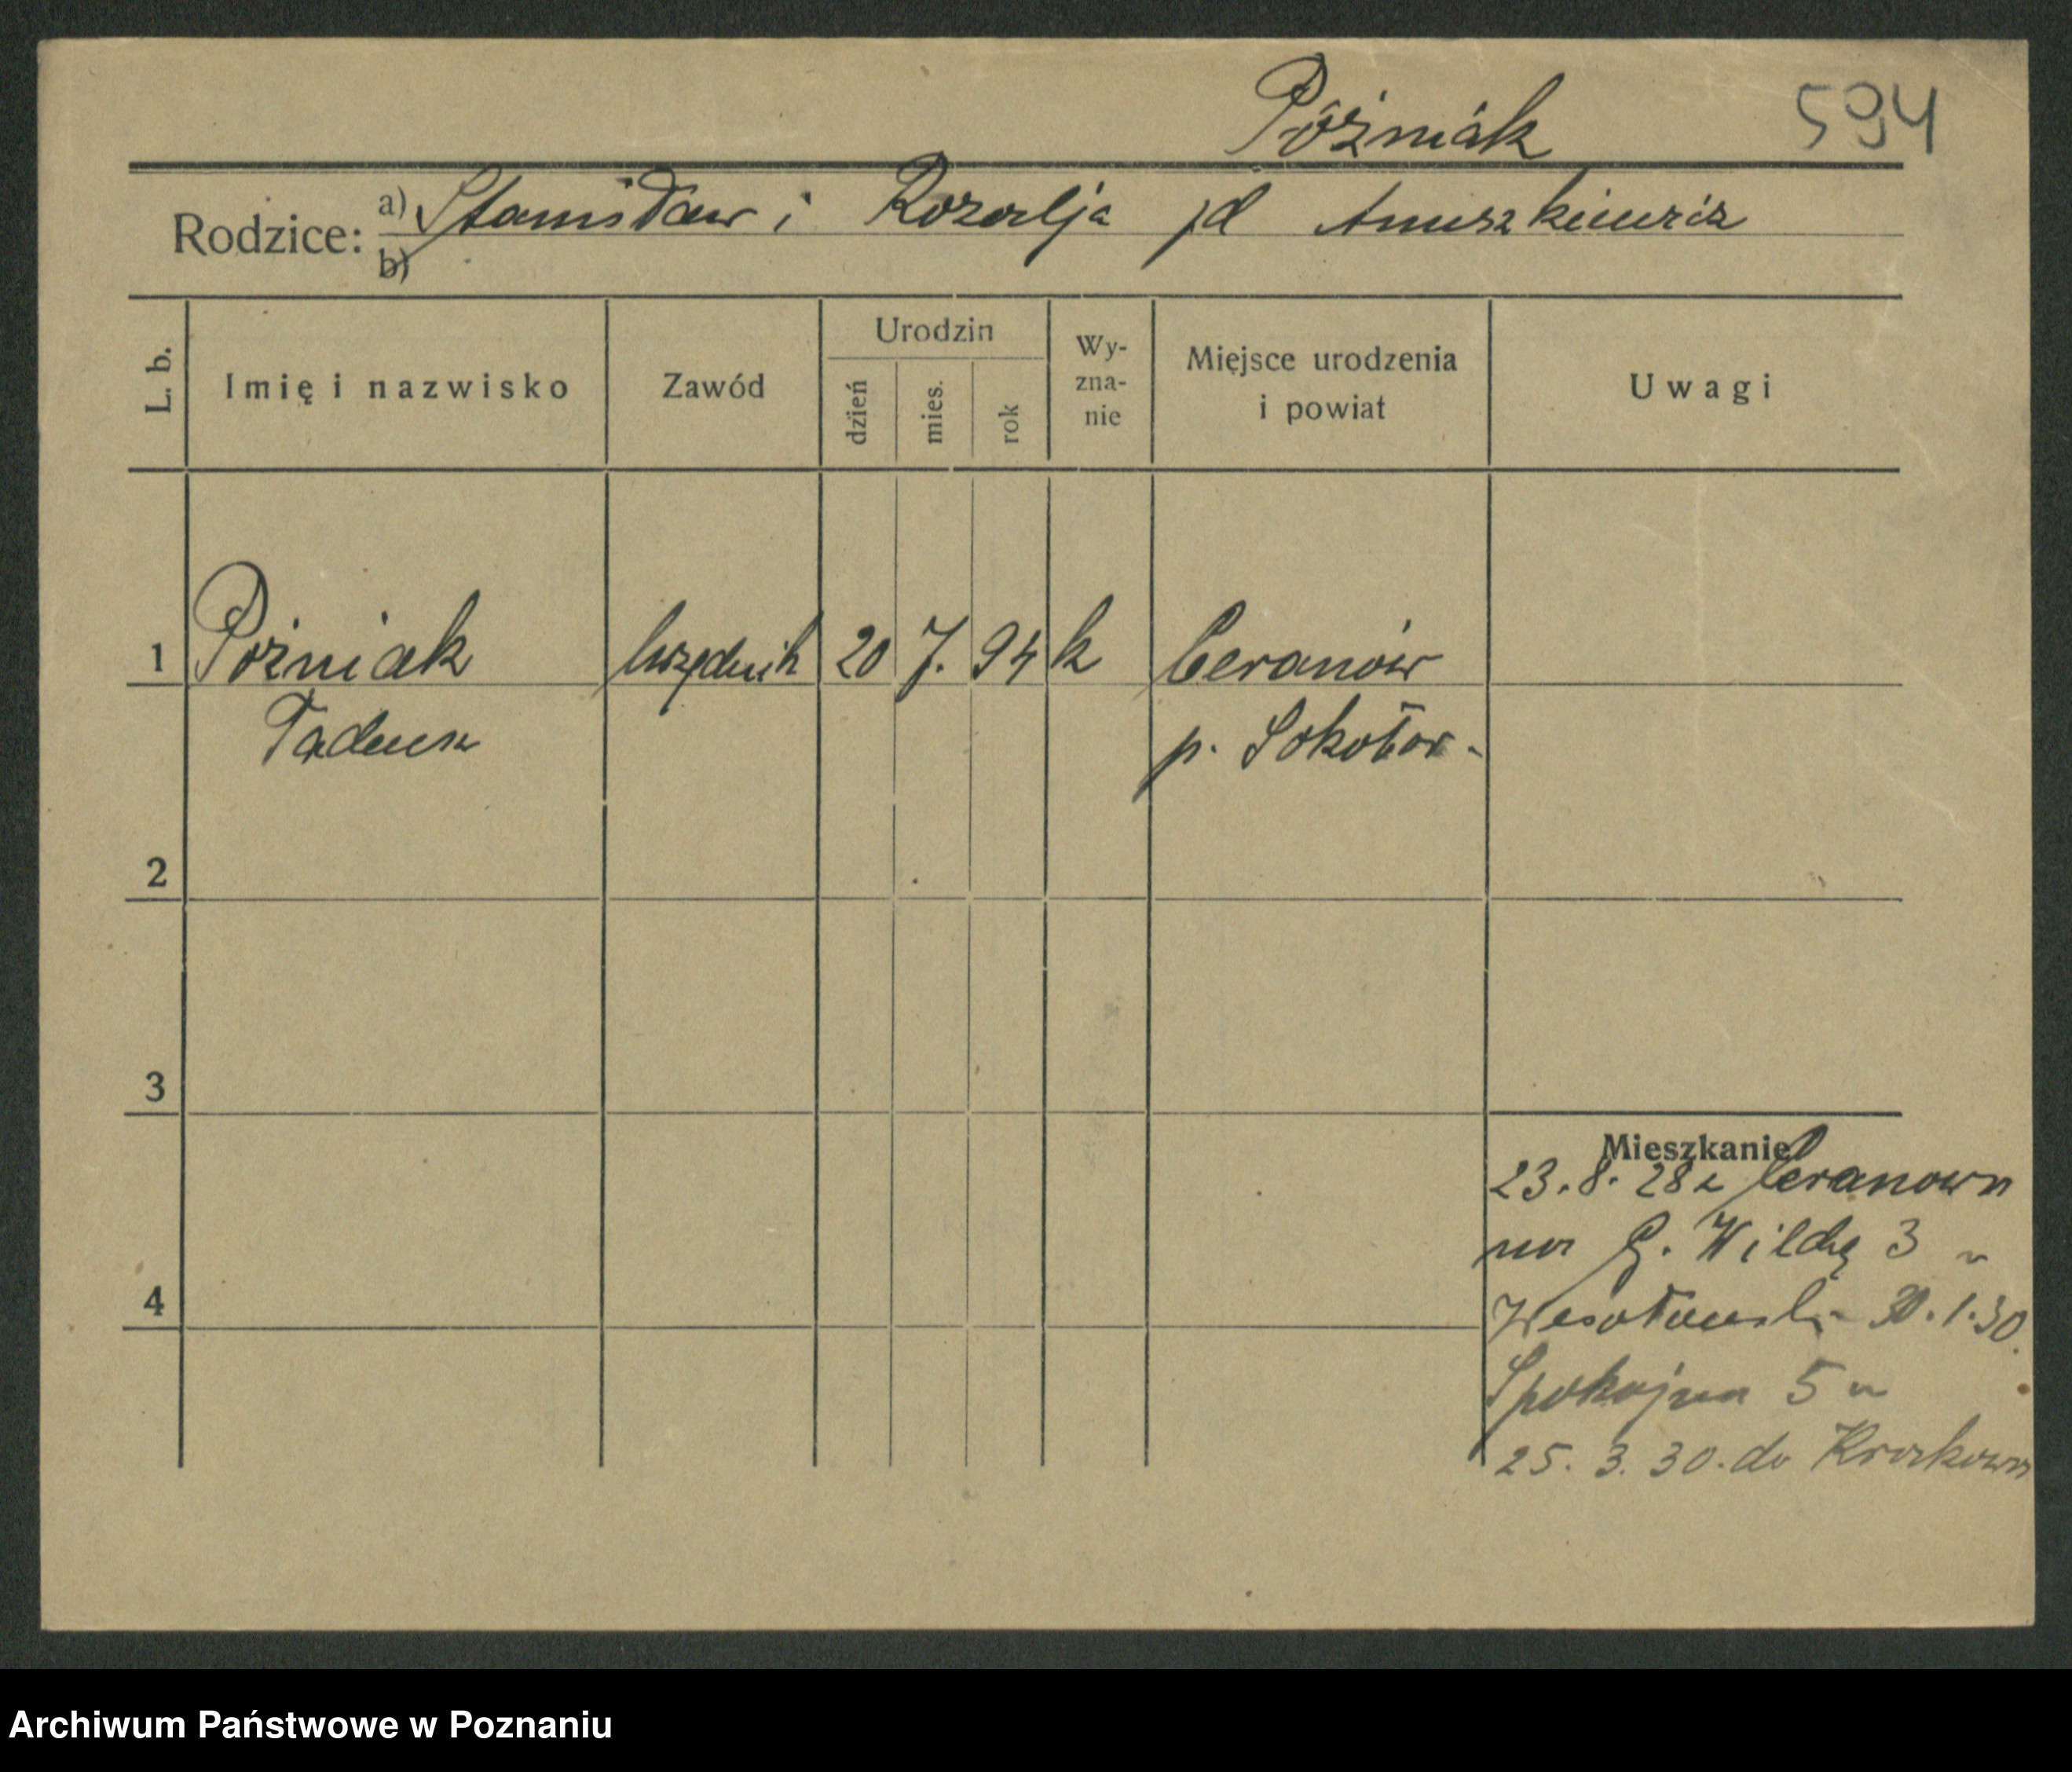 Poźniak 594
Rodzice: a) Stanisław i Rozalja jd
b)
L. b. Imię i nazwisko Zawód Urodzin dzień mies. rok Wy-zna-nie Miejsce urodzenia i powiat Uwagi
1 Poźniak urzędnik 20 7. 94 k Ceranów
Tadeusz p. Sokołow.
2
3
Mieszkanie
23.8.28 z Ceranowa
na G. Wildę 3 u
4
30.1.30.
Spokojna 5 u
25.3.30. do Krakowa
Archiwum Państwowe w Poznaniu